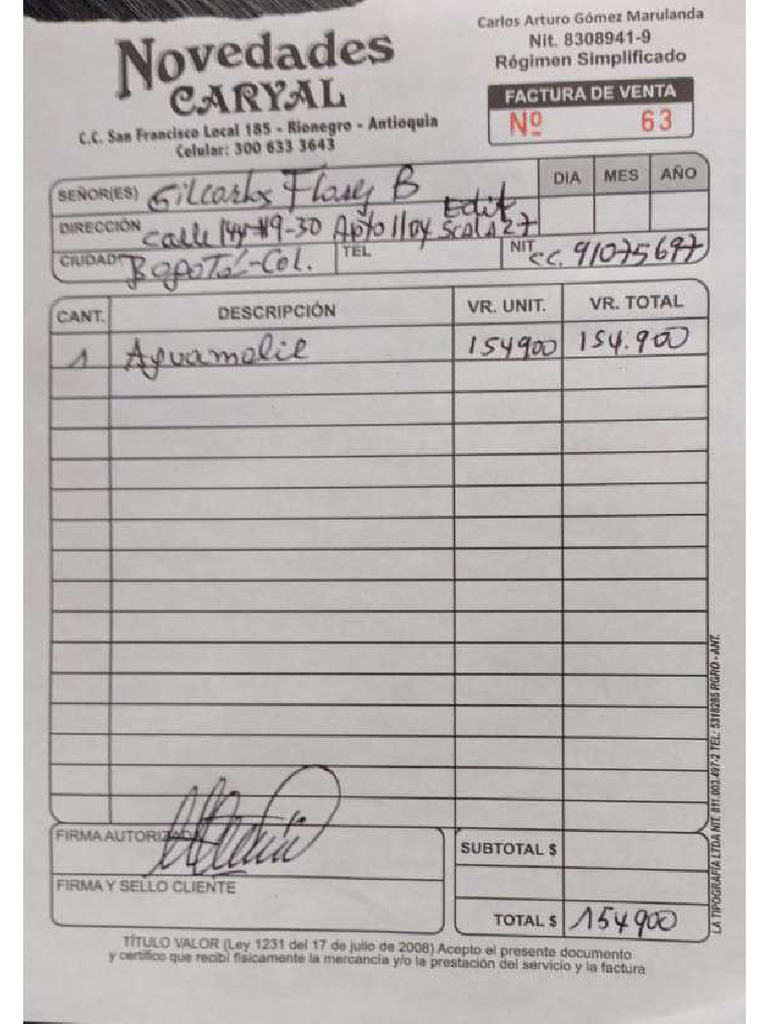 Novedades
CARYAL
C.C. San Francisco Local 185 - Rionegro - Antioquia
Celular: 300 633 3643
Carlos Arturo Gómez Marulanda
Nit. 8308941-9
Régimen Simplificado
FACTURA DE VENTA
Nº 63
SEÑOR(ES) Gilcarlos Florez B
DIA MES AÑO
DIRECCIÓN Calle 144 #9-30 Apto 1104 Edif Scala 27
CIUDAD Bogotá-Col. TEL NIT cc. 91075697
CANT. DESCRIPCIÓN VR. UNIT. VR. TOTAL
1 Aguamolie 154900 154.900
FIRMA AUTORIZADA
FIRMA Y SELLO CLIENTE
SUBTOTAL $
TOTAL $ 154900
TÍTULO VALOR (Ley 1231 del 17 de julio de 2008) Acepto el presente documento
y certifico que recibí físicamente la mercancía y/o la prestación del servicio y la factura
LA TIPOGRAFÍA LTDA NIT. 811.003.497-2 TEL: 5318285 RGRO - ANT.